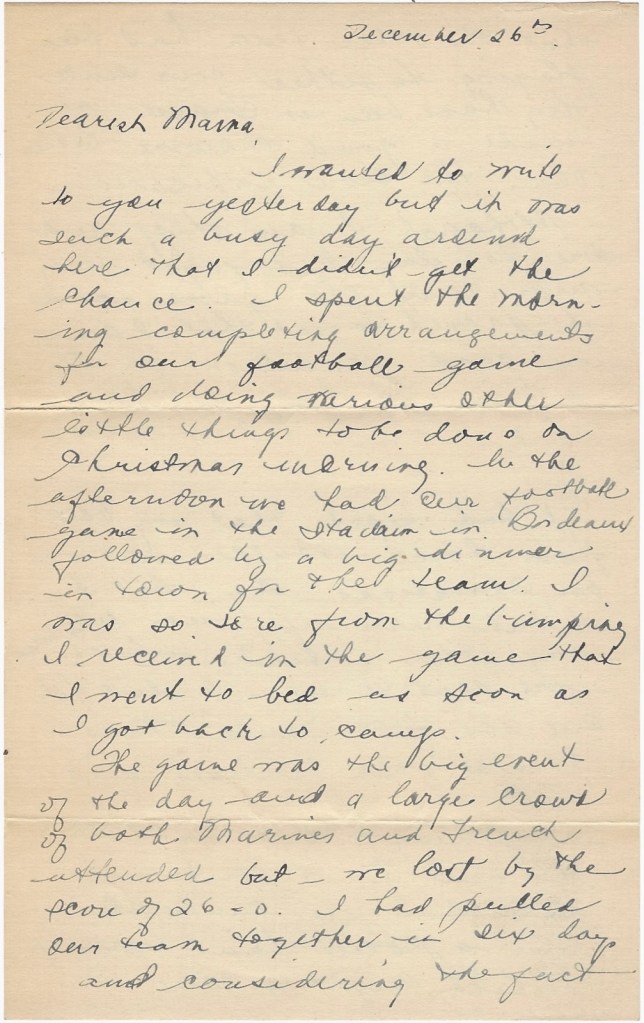 December 26th.
Dearest Mama,
I wanted to write
to you yesterday but it was
such a busy day around
here that I didn't get the
chance. I spent the morn-
ing completing arrangements
for our football game
and doing various other
little things to be done on
Christmas morning. In the
afternoon we had our football
game in the stadium in Bordeaux
followed by a big dinner
in town for the team. I
was so sore from the bumping
I received in the game that
I went to bed as soon as
I got back to camp.
The game was the big event
of the day and a large crowd
of both Marines and French
attended but we lost by the
score of 26-0. I had pulled
our team together in six days
and considering the fact